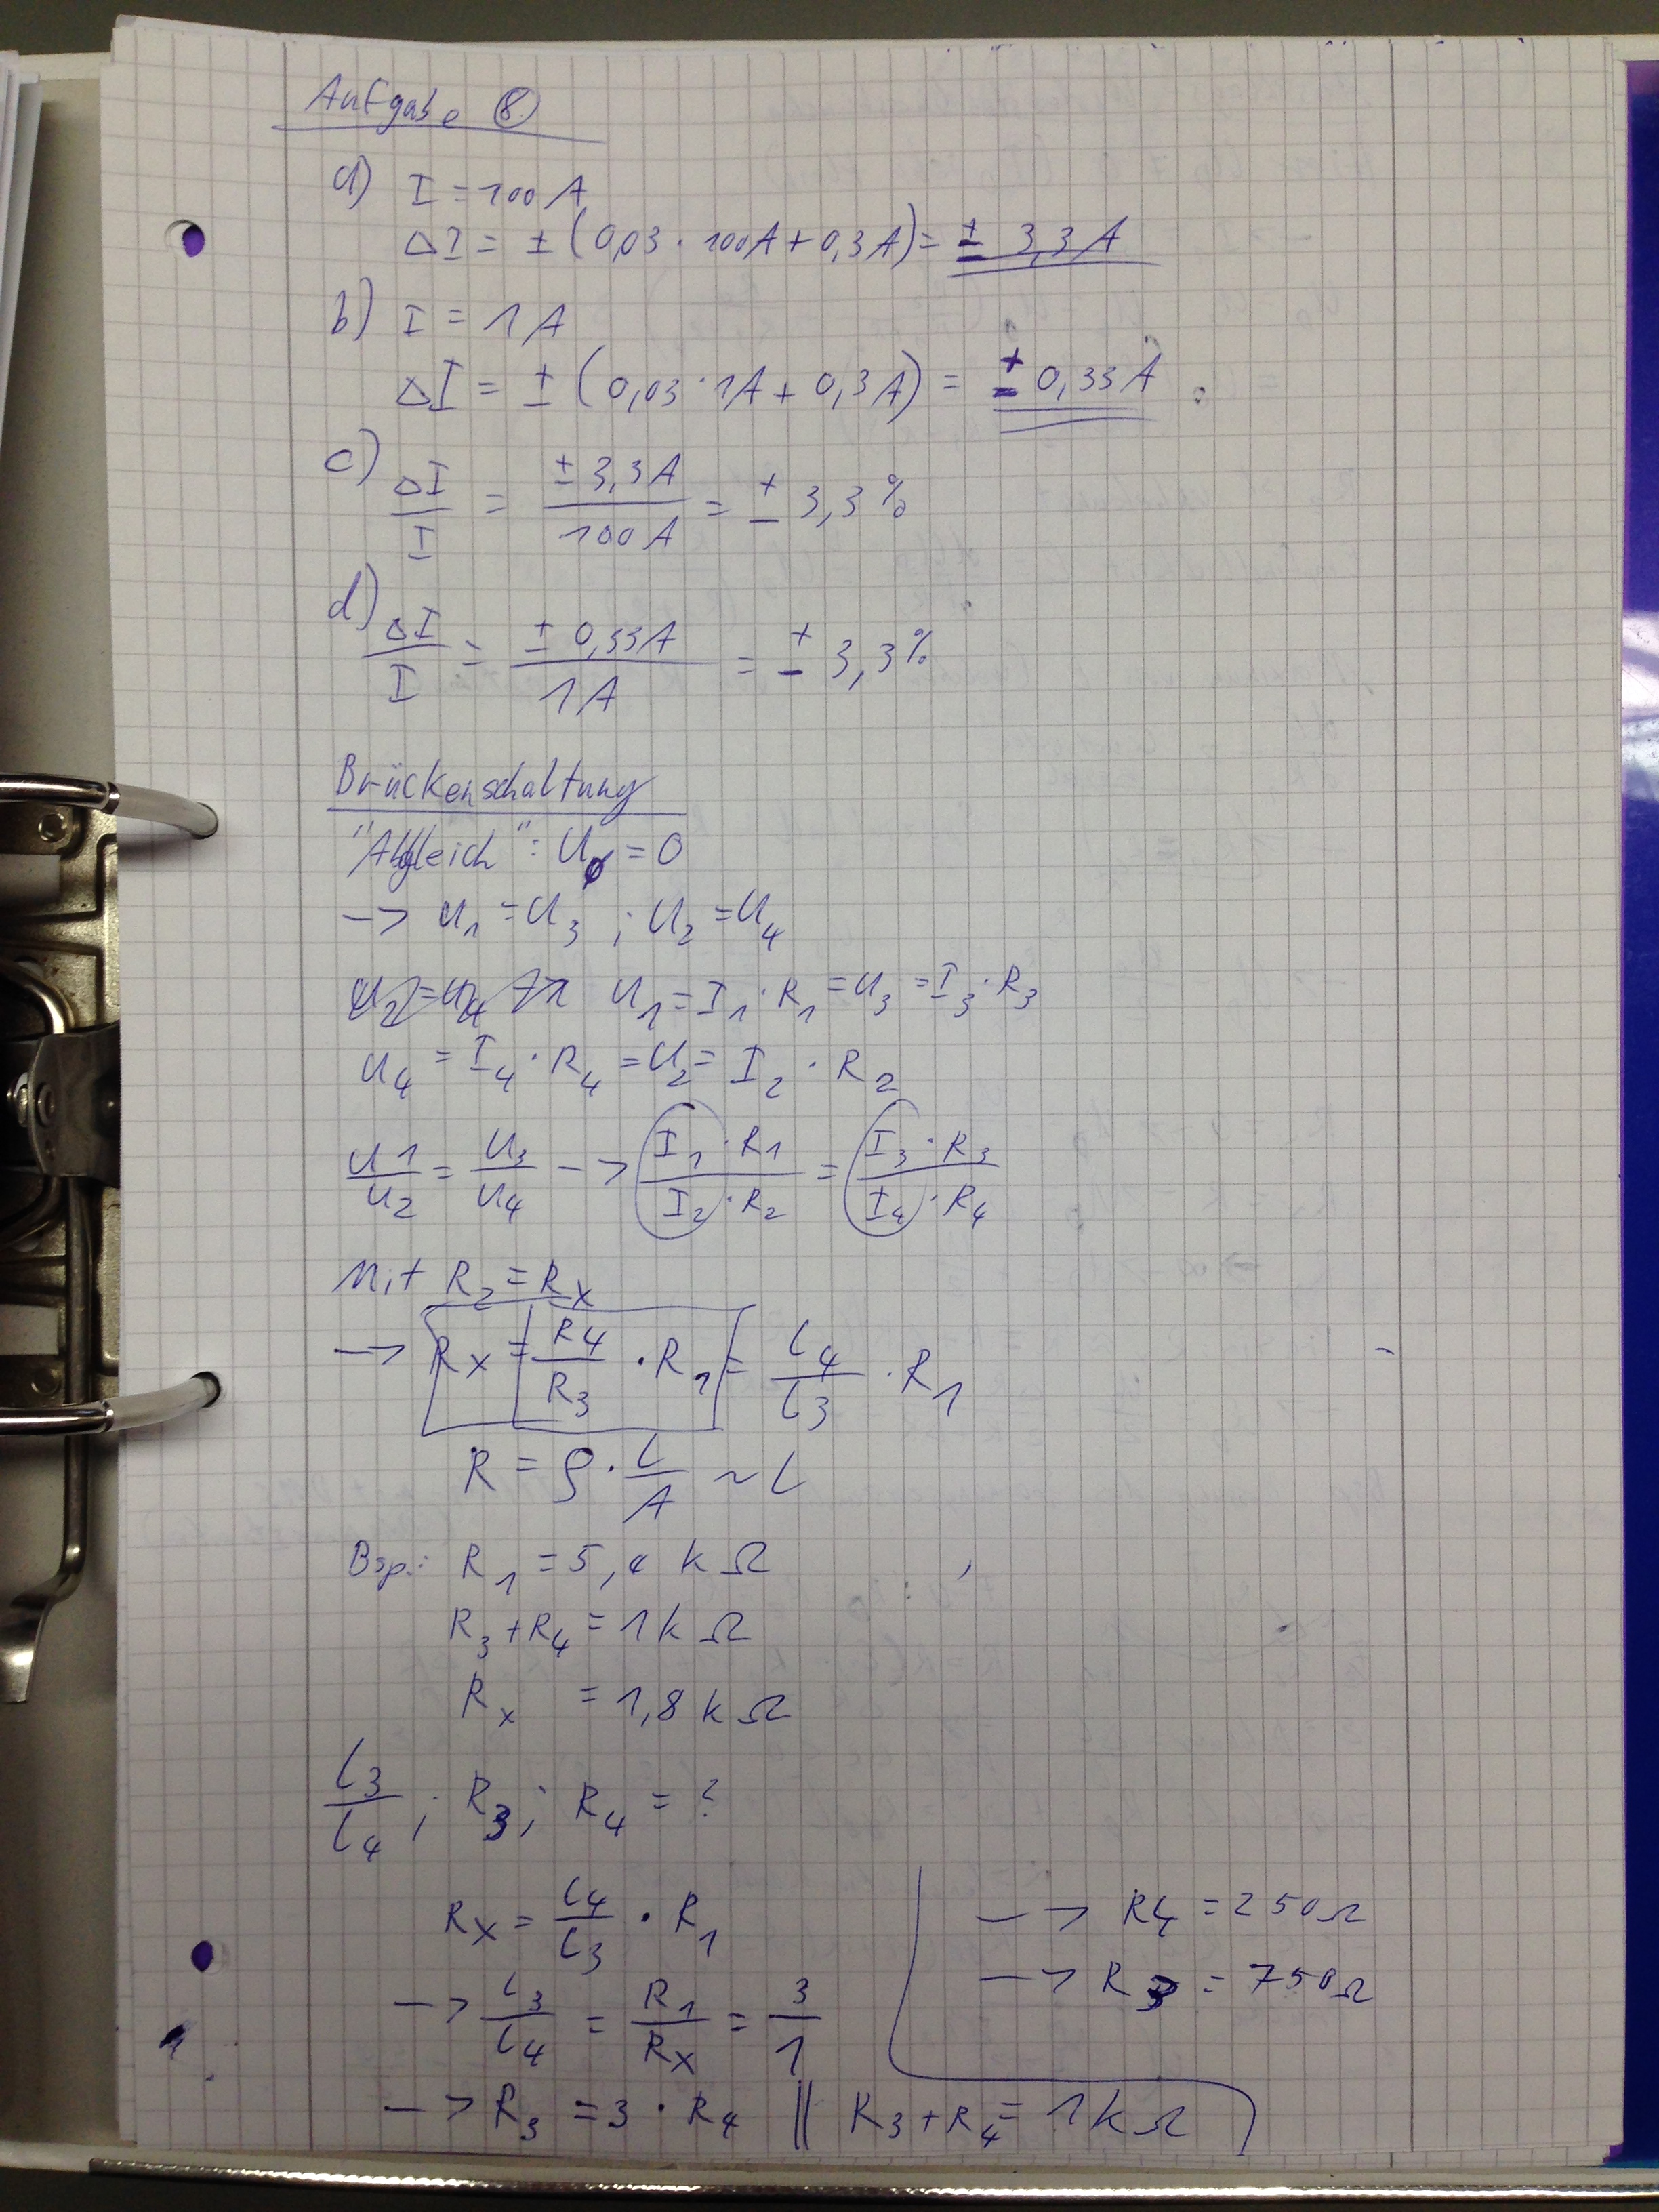 Aufgabe ⑧
a) I = 100 A
ΔI = ± (0,03 · 100A + 0,3A) = ± 3,3 A
b) I = 1 A
ΔI = ± (0,03 · 1A + 0,3 A) = ± 0,33 A
c) ΔI/I = ± 3,3 A / 100 A = ± 3,3 %
d) ΔI/I = ± 0,33 A / 1 A = ± 3,3 %
Brückenschaltung
"Abgleich": U₀ = 0
-> U₁ = U₃ ; U₂ = U₄
U₁ = I₁ · R₁ = U₃ = I₃ · R₃
U₄ = I₄ · R₄ = U₂ = I₂ · R₂
U1/U₂ = U₃/U₄ -> I₁ · R₁ / I₂ · R₂ = I₃ · R₃ / I₄ · R₄
Mit R₂ = Rx
-> Rx = R4/R3 · R₁ = l₄/l₃ · R₁
R = ρ · l/A ~ l
Bsp.: R₁ = 5,4 k Ω
R₃ + R₄ = 1 k Ω
Rx = 1,8 k Ω
l₃/l₄ ; R₃ ; R₄ = ?
Rx = l₄/l₃ · R₁
-> l₃/l₄ = R₁/Rx = 3/1
-> R₃ = 3 · R₄ || R₃ + R₄ = 1 k Ω
-> R4 = 250 Ω
-> R₃ = 750 Ω